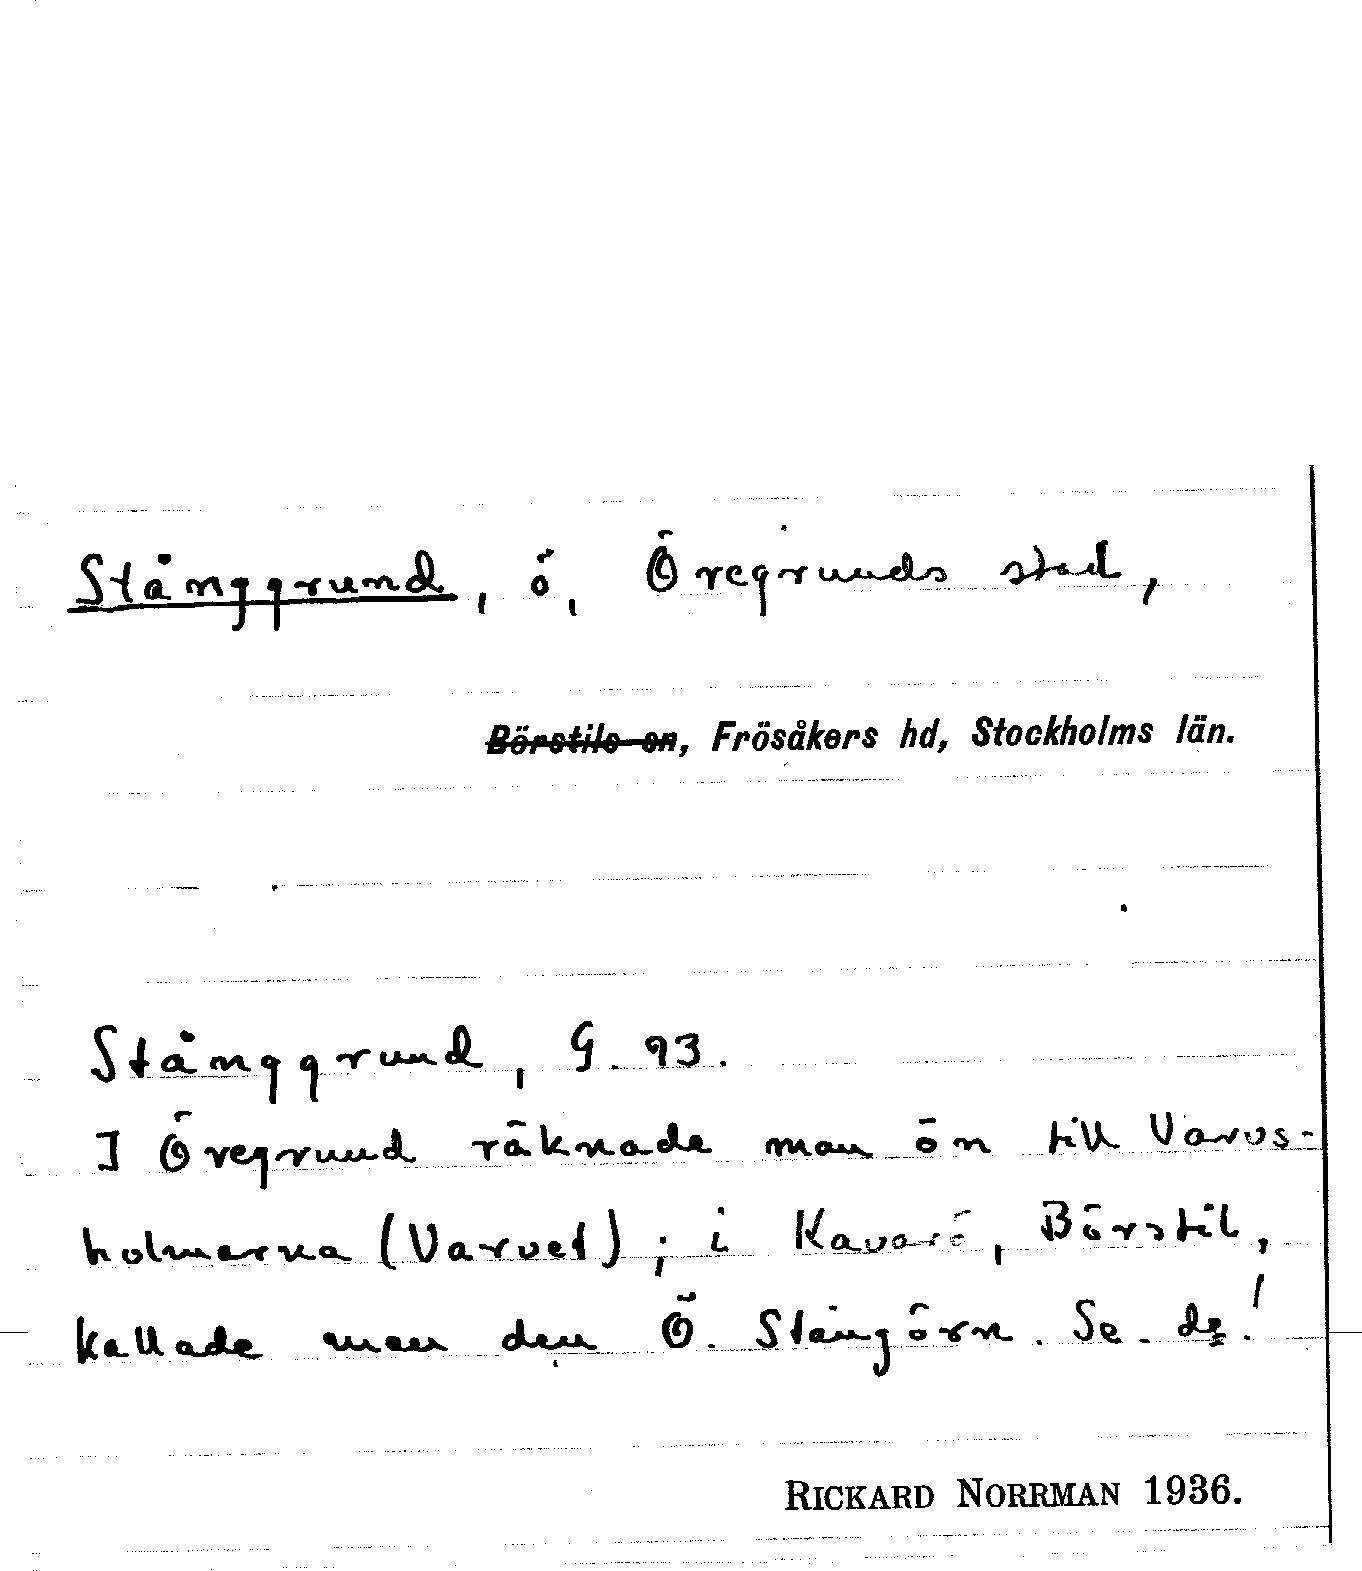 Stånggrund, ö, Öregrunds stad,
Börstils sn, Frösåkers hd, Stockholms län.
Stånggrund, G. 93.
I Öregrund räknade man ön till Varvs-
holmarna (Varvet); i Kavarö, Börstil,
kallade man den Ö. Stångörn. Se. de!
RICKARD NORRMAN 1936.